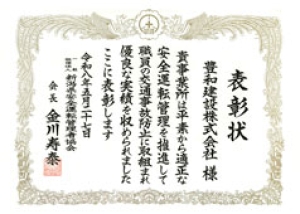 表彰状
豊和建設株式会社 様
貴事業所は平素から適正な
安全運転管理を推進して
職員の交通事故防止に取組まれ
優良な実績を収められました
ここに表彰します
令和八年五月二十七日
新潟県安全運転管理者協会
会長 金川寿泰